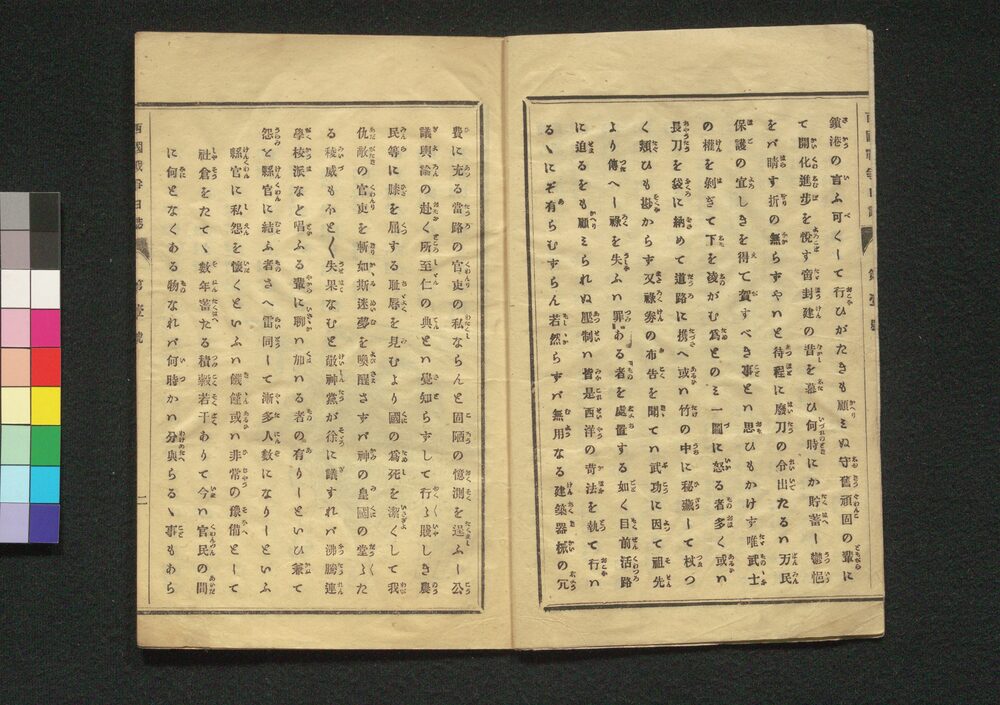 鎖港の言ふ可くして行ひがたきも顧ミぬ守舊頑固の輩に
て開化進歩を悅す窃封建の昔を慕ひ何時にか貯蓄し鬱悒
をバ晴す折の無らずやハと待程に廢刀の令出たるハ万民
保護の宜しきを得て賀すべき事とハ思ひもかけす唯武士
の權を剝ぎて下を凌がむ爲とのミ一圖に怒る者多く或ハ
長刀を袋に納めて道路に携へ或ハ竹の中に秘藏して杖つ
く類ひも尠からす又祿券の布告を聞てハ武功に因て祖先
より傳へし祿を失ふハ罪ある者を處置する如く目前活路
に迫るをも顧ミられぬ壓制ハ皆是西洋の苛法を執て行ハ
るゝにぞ有らむすらん若然らずバ無用なる建築器械の冗
費に充る當路の官吏の私ならんと固陋の憶測を逞ふし公
議輿論の赴く所至仁の典とハ覺知らすして行よ賤しき農
民等に膝を屈する耻辱を見むより國の爲死を潔くして我
仇敵の官吏を斬如斯迷夢を喚醒さずバ神の皇國の堂々た
る稜威もふと〱失果なむと敬神黨が徐に議すれバ沸騰連
學校派など唱ふる輩に聊ハ加ハる者の有りしといひ兼て
怨と縣官に結ふ者さへ雷同して漸多人數になりしといふ
縣官に私怨を懷くといふハ饑饉或ハ非常の豫備とて
社倉をたてゝ數年蓄たる積穀若干ありて今ハ官民の間
に何となくある物なれバ何時かハ分與らるゝ事もあら
西國戰爭日誌
第壹號
二